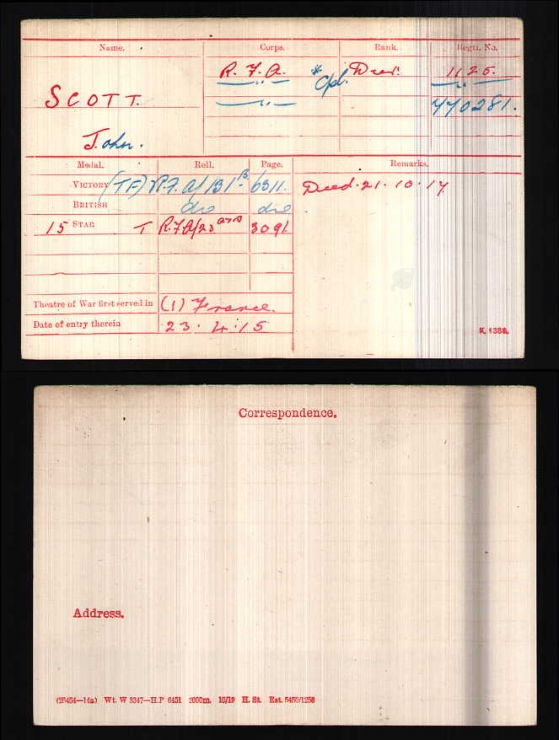 Name. Corps. Rank. Regtl. No.
R. F. A. Dvr. 1125.
SCOTT. —"— * Cpl. —"— 770281.
John.
Medal. Roll. Page. Remarks.
VICTORY (TF) R.F.A/131 B 6311. Died. 21. 10. 17
BRITISH do do
15 STAR T R.F.A/23 309
Theatre of War first served in (1) France.
Date of entry therein 23. 4. 15
K. 1388.
Correspondence.
Address.
Wt. W 3347—H.P 6451 2000m. 10/19 H. St. Est. 5450/1258